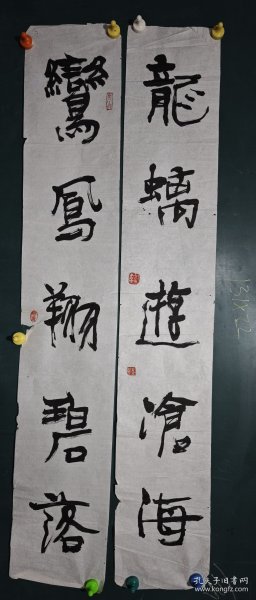 龍螭遊滄海
鸞鳳翔碧落
131X22
孔夫子旧书网
www.kongfz.com